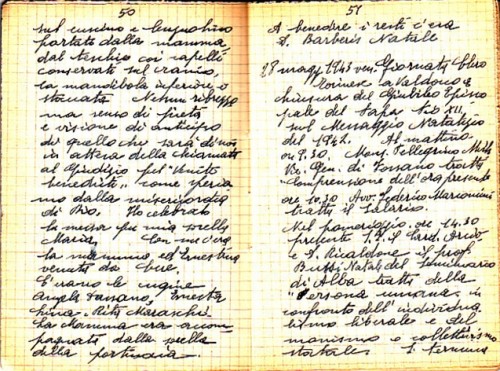 50
sul cuscino e lenzuolino
portato dalla mamma,
dal teschio coi capelli
conservati sul cranio,
la mandibola inferiore, o
staccata Nessun ribrezzo
ma senso di pietà
e visione di anticipo
di quello che sarà di noi
in attesa della chiamata
al Giudizio pel "Venite
benedicti" come speria
mo dalla misericordia
di Dio. Ho celebrato
la messa per mia sorella
Maria. Con me c'era
la mamma ed Ernestina
venuta da
C'erano le cugine
Angela Fassano, Ernesta
China. Rita Maraschi.
La Mamma era accom
pagnata dalla sorella
della portinaia.
51
A benedire i resti c'era
D. Barberis Natale
28 magg. 1943 ven. Giornata Clero
Torinese a Valdocco a
chiusura del Giubileo Episco
pale del Papa Pio XII,
sul Messaggio Natalizio
del 1942. Al mattino
ore 9.30. Mons. Pellegrino Mich.
Vic. Gen. di Fossano tratta
Comprensione dell'ora presente
ore 10.30 Avv. Federico Marconcini
tratta il Salario.
Nel pomeriggio, ore 14.30
presente S.E. il Card. Arciv.
e D. Ricaldone il prof
Bussi Natale del Seminario
di Alba tratta della
"Persona umana" in
confronto dell'individua
lismo liberale e del
marxismo o collettivismo
statale.